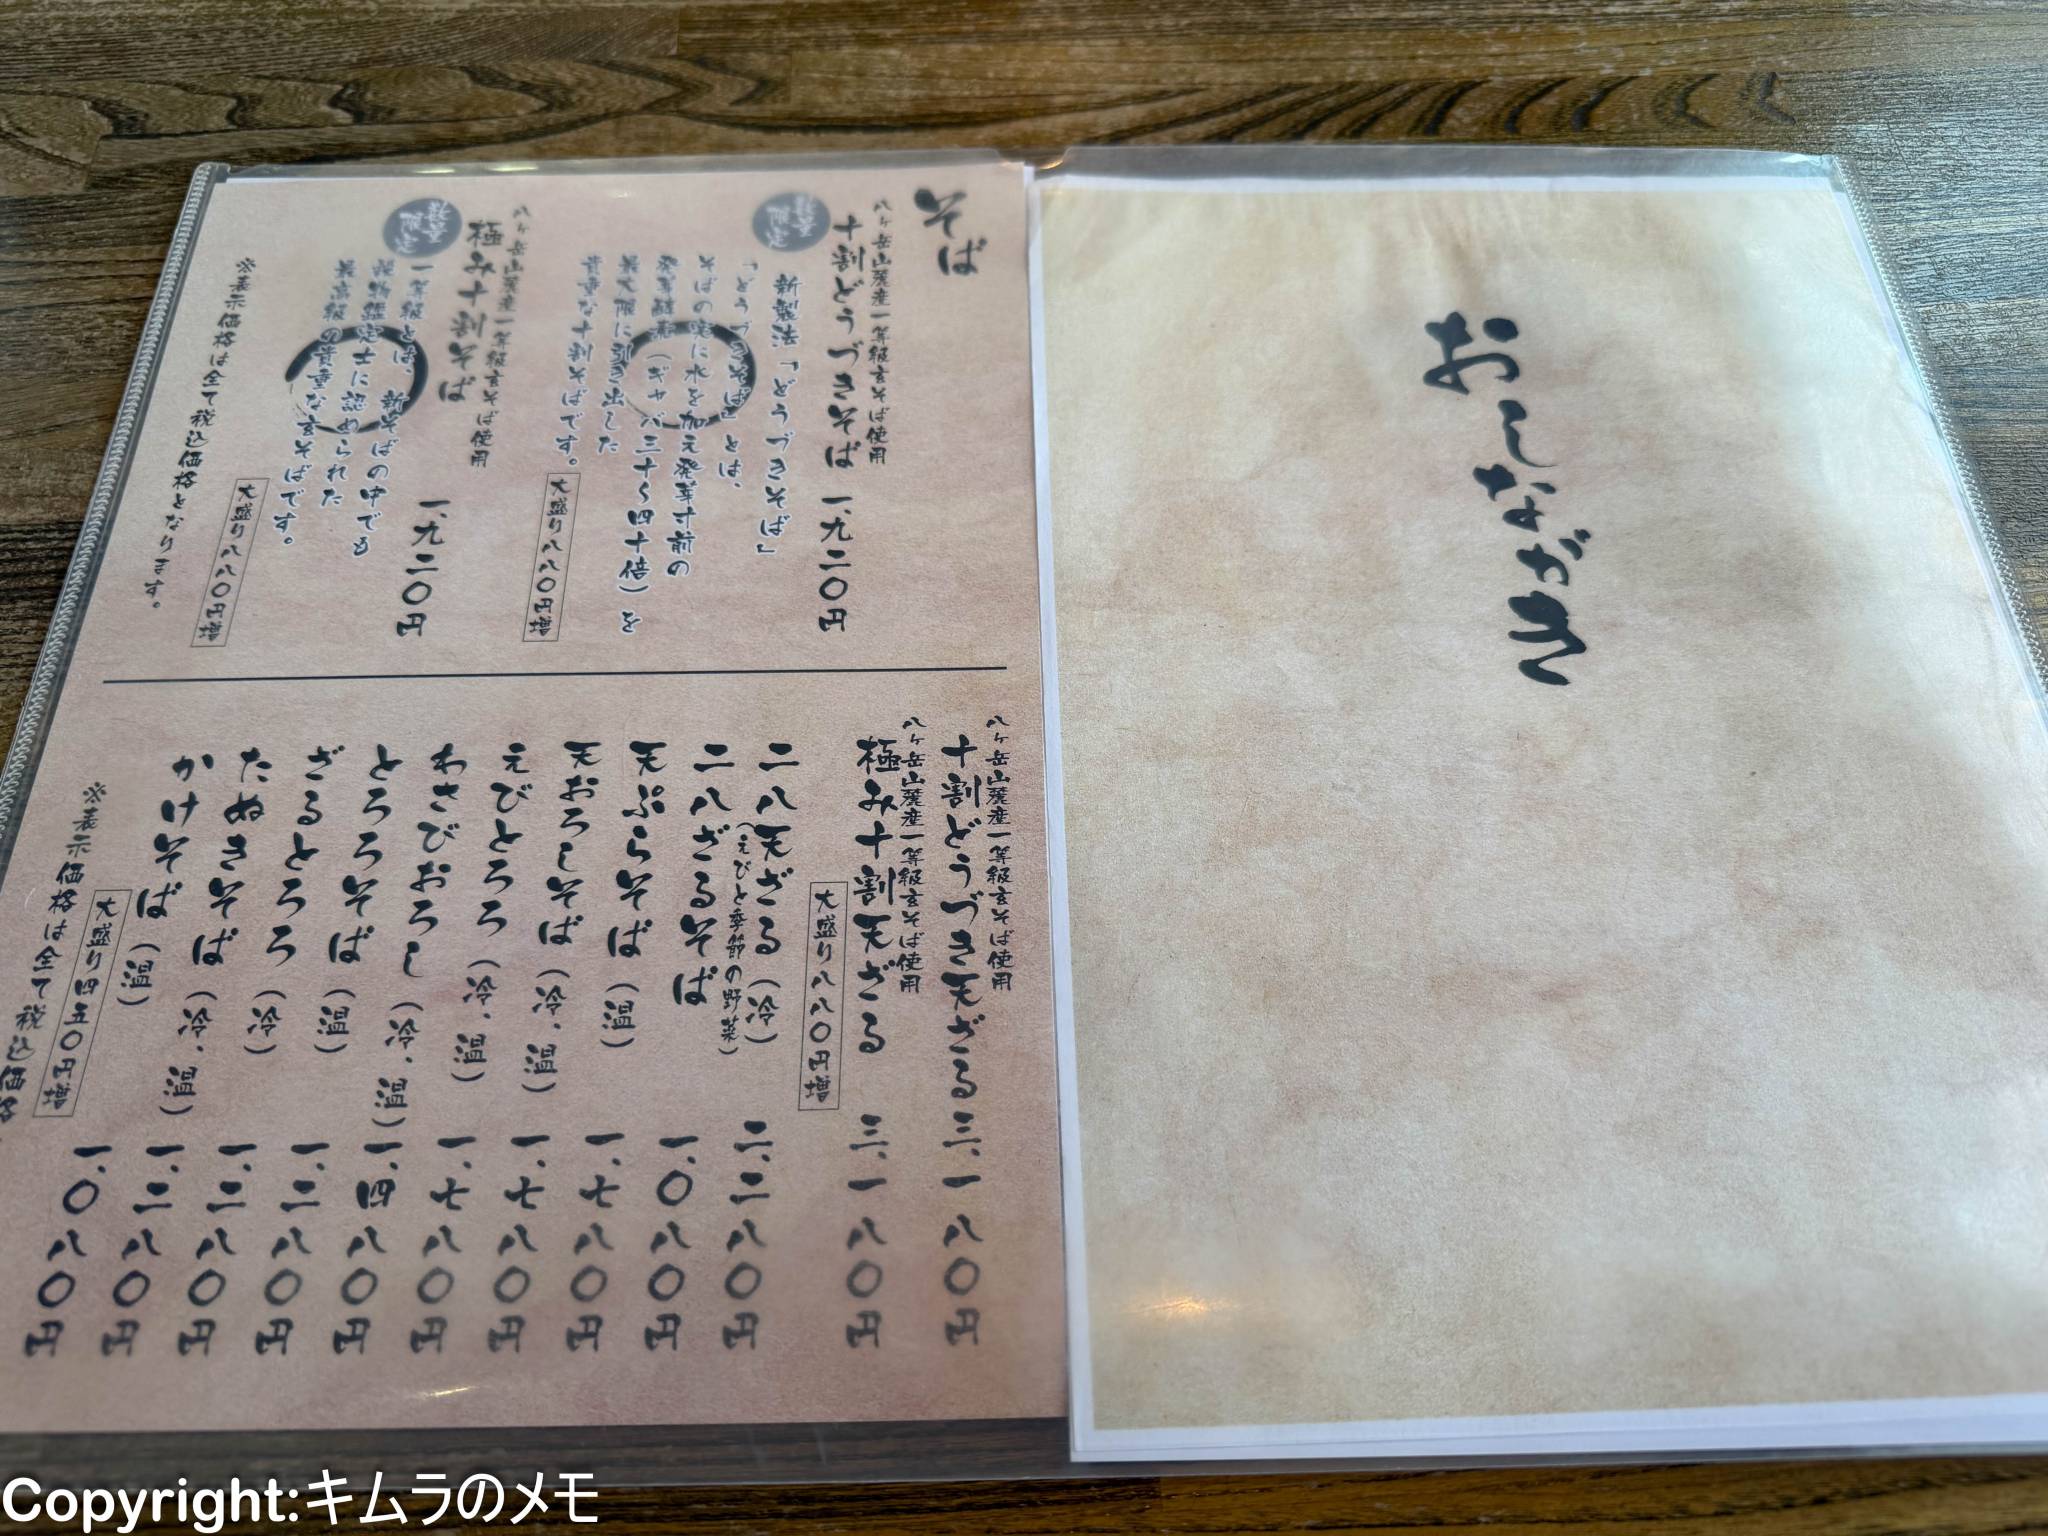 おしながき
そば
八ヶ岳山麓産一等級玄そば使用
十割どうづきそば 一、九二〇円
数量
限定
新製法「どうづきそば」
「どうづきそば」とは、
そばの実に水を加え発芽寸前の
発芽酵素（ギャバ三十〜四十倍）を
最大限に引き出した
貴重な十割そばです。
大盛り八八〇円増
八ヶ岳山麓産一等級玄そば使用
極み十割そば 一、九二〇円
数量
限定
一等級とは、新そばの中でも
穀物鑑定士に認められた
最高級の貴重な玄そばです。
大盛り八八〇円増
※表示価格は全て税込価格となります。
八ヶ岳山麓産一等級玄そば使用
十割どうづき天ざる 三、一八〇円
八ヶ岳山麓産一等級玄そば使用
極み十割天ざる 三、一八〇円
大盛り八八〇円増
二八天ざる（冷） 二、二八〇円
（えびと季節の野菜）
二八ざるそば 一、〇八〇円
天ぷらそば（温） 一、七八〇円
天おろしそば（冷、温） 一、七八〇円
えびとろろ（冷、温） 一、七八〇円
わさびおろし（冷、温） 一、四八〇円
とろろそば（温） 一、二八〇円
ざるとろろ（冷） 一、二八〇円
たぬきそば（冷、温） 一、二八〇円
かけそば（温） 一、〇八〇円
大盛り四五〇円増
※表示価格は全て税込価格
Copyright:キムラのメモ